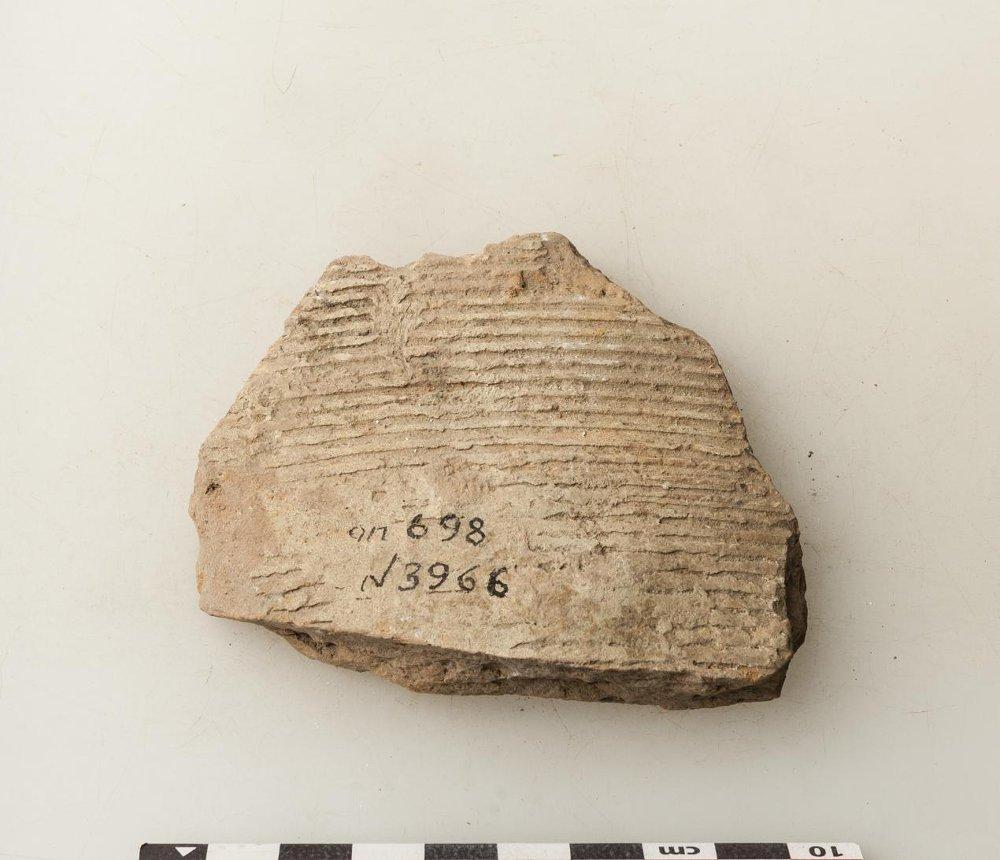 оп 698
№3966
cm 10